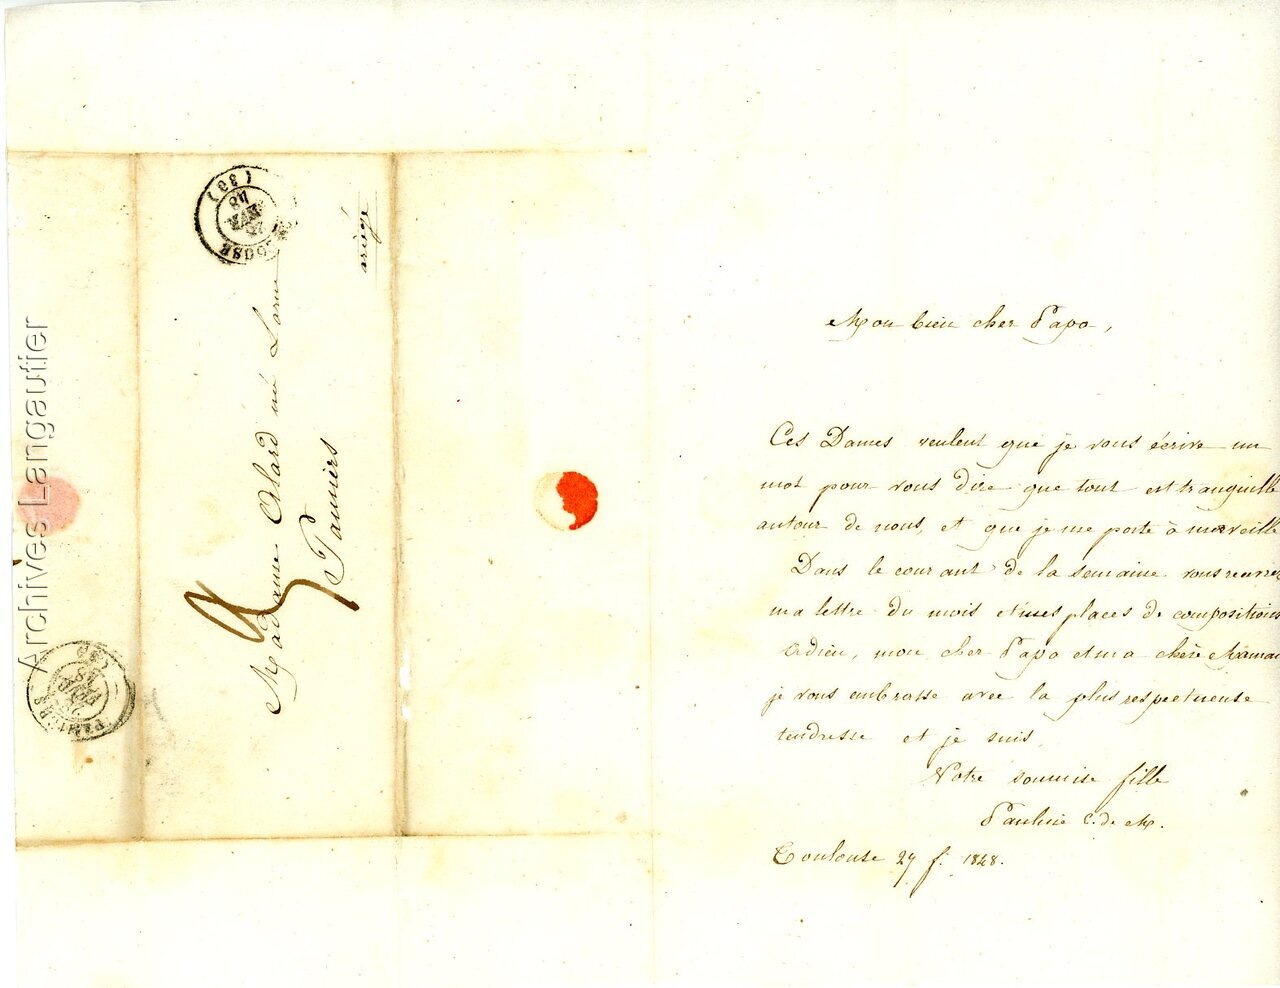 Archives Langautier
(30)
48
ariége
Madame Alard né Larue
Pamiers
PAMIERS
Mon bien cher Papa,
Ces Dames veulent que je vous écrive un
mot pour vous dire que tout est tranquille
autour de nous, et que je me porte à merveille
Dans le courant de la semaine vous
ma lettre du mois et mes places de compositions
Adieu, mon cher Papa et ma chère Maman
je vous embrasse avec la plus respectueuse
tendresse et je suis,
Votre soumise fille
Pauline C. de M.
Toulouse 27 f. 1848.